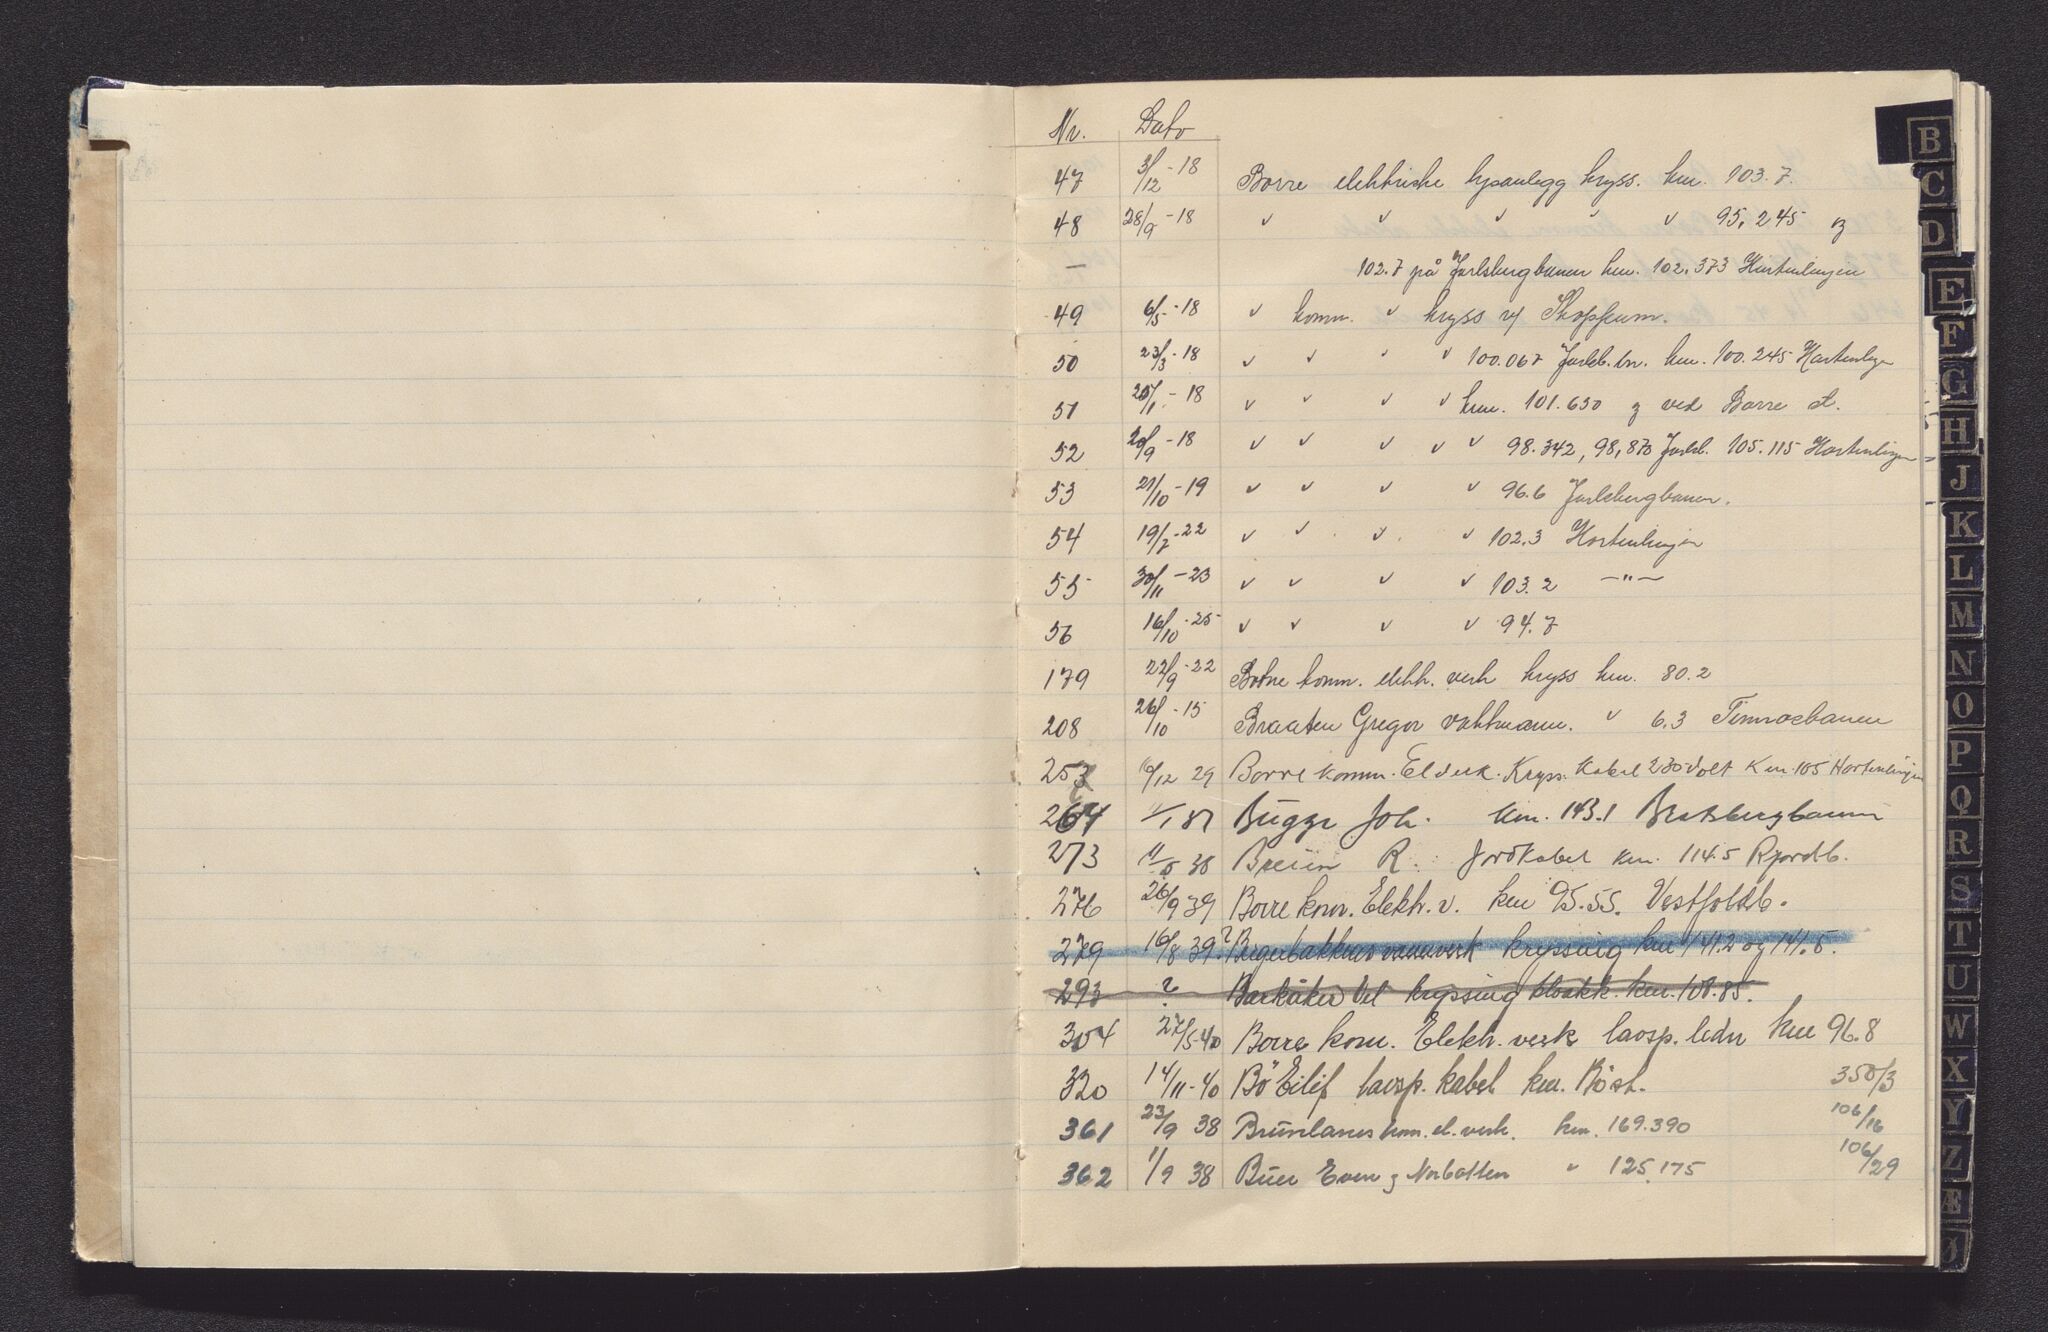 Nr. Dato
47 3/12 -18 Borre elektriske lysanlegg kryss. km. 103.7.
48 28/9 -18 " " " " " 95,245 og
— 102.7 på Jarlsbergbanen km. 102.373 Hortenlinjen
49 6/5 -18 " komm. " kryss v/ Skoppum.
50 23/3 -18 " " " " 100.067 Jarlsb.bn. km. 100.245 Hortenlinjen
51 /1 -18 " " " " km. 101.630 og ved Borre st.
52 20/9 -18 " " " " " 98.342, 98,870 Jarlsb. 105.115 Hortenlinjen
53 21/10 -19 " " " " 96.6 Jarlsbergbanen.
54 19/7 -22 " " " " 102.3 Hortenlinjen
55 30/11 -23 " " " " 103.2 —"—
56 16/10 -25 " " " " 94.7
179 22/9 -22 Botne komm. elektr. verk kryss km. 80.2
208 26/10 -15 Braaten Gregor vaktmann. " 6.3 Tinnosbanen
25 /12 29 Borre komm. El verk. Kryss. Kabel 230 Volt Km. 105 Hortenlinjen
264 Bugge Joh. km. 143.1 Bratsbergbanen
273 11/ 38 R. Jordkabel km. 114.5 Rjordb.
276 26/9 39 Borre kom. Elektr. v. km 95.55. Vestfoldb.
279 16/8 39? vannverk kryssing km 141.2 og 141.5.
293 ? Barkåker Vel kryssing kloakk. km. 108.85.
304 27/5-40 Borre kom. Elektr. verk lavsp. ledn km 96.8
320 14/11-40 Bö Eilif lavsp. kabel km. Bö st. 350/3
361 23/9 38 Brunlanes kom. el. verk. km. 169.390 106/16
362 1/9 38 Buer Even og Norbotten " 125.175 106/29
B
C
D
E
F
G
H
J
K
L
M
N
O
P
Q
R
S
T
U
W
X
Y
Z
Æ
Ø